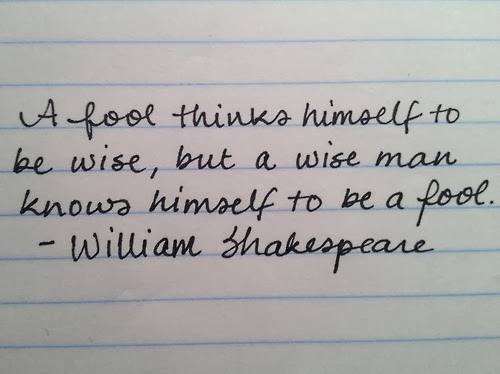 A fool thinks himself to
be wise, but a wise man
knows himself to be a fool.
- William Shakespeare